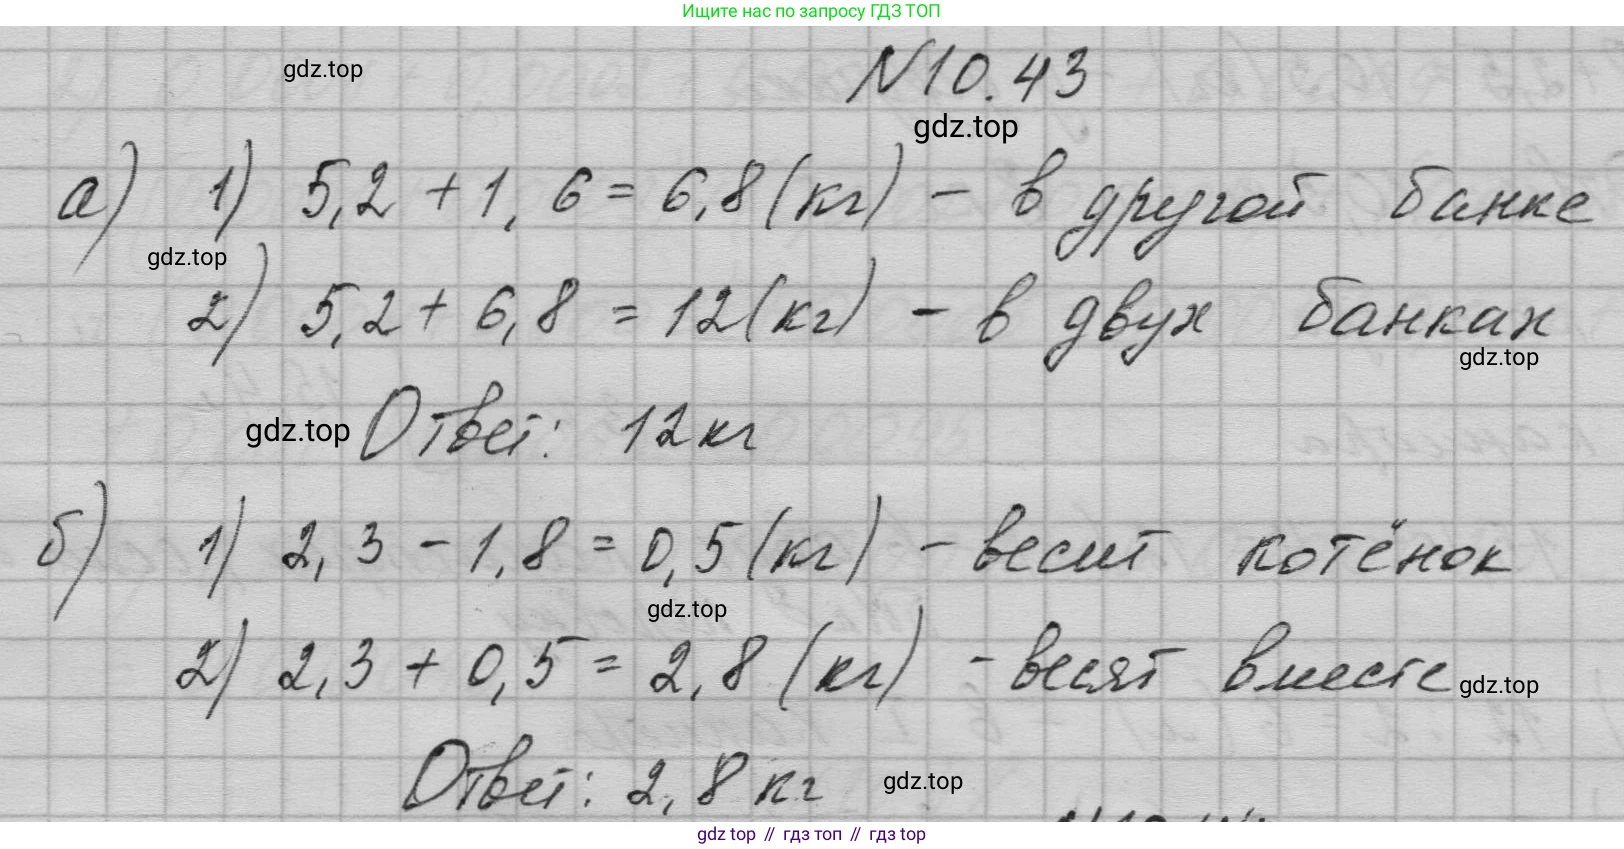 Ищите нас по запросу ГДЗ ТОП
N10.43
gdz.top
gdz.top
а) 1) 5,2 + 1,6 = 6,8 (кг) - в другой банке
gdz.top
2) 5,2 + 6,8 = 12 (кг) - в двух банках
gdz.top
gdz.top
Ответ: 12 кг
б) 1) 2,3 - 1,8 = 0,5 (кг) - весит котёнок
gdz.top
2) 2,3 + 0,5 = 2,8 (кг) - весят вместе
gdz.top
Ответ: 2,8 кг
gdz.top
gdz top // гдз топ // гдз top